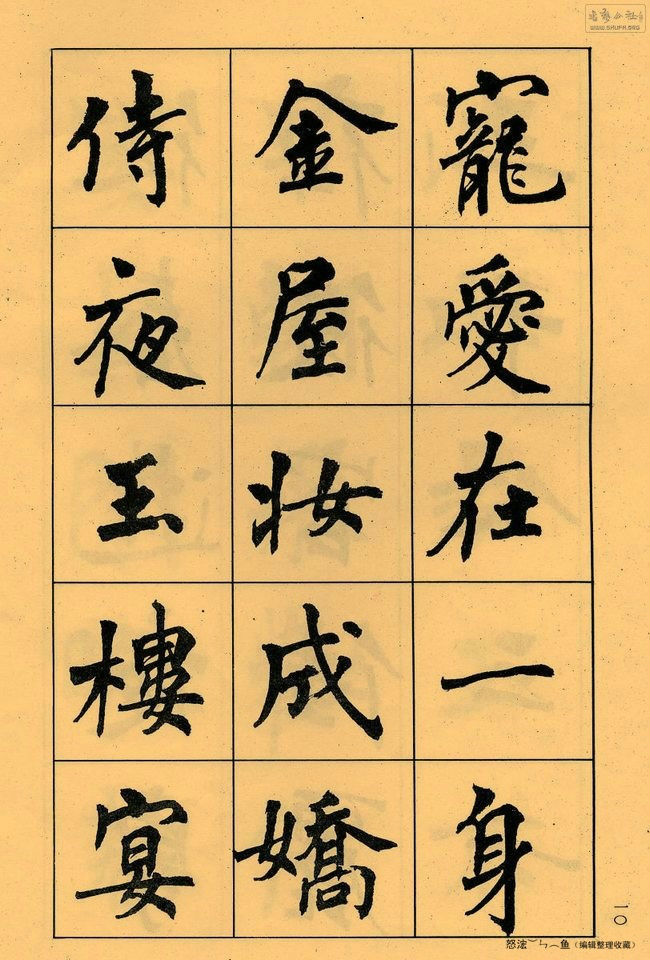 寵愛在一身
金屋妝成嬌
侍夜玉樓宴
一〇
(编辑整理收藏)
WWW.SHUFA.ORG